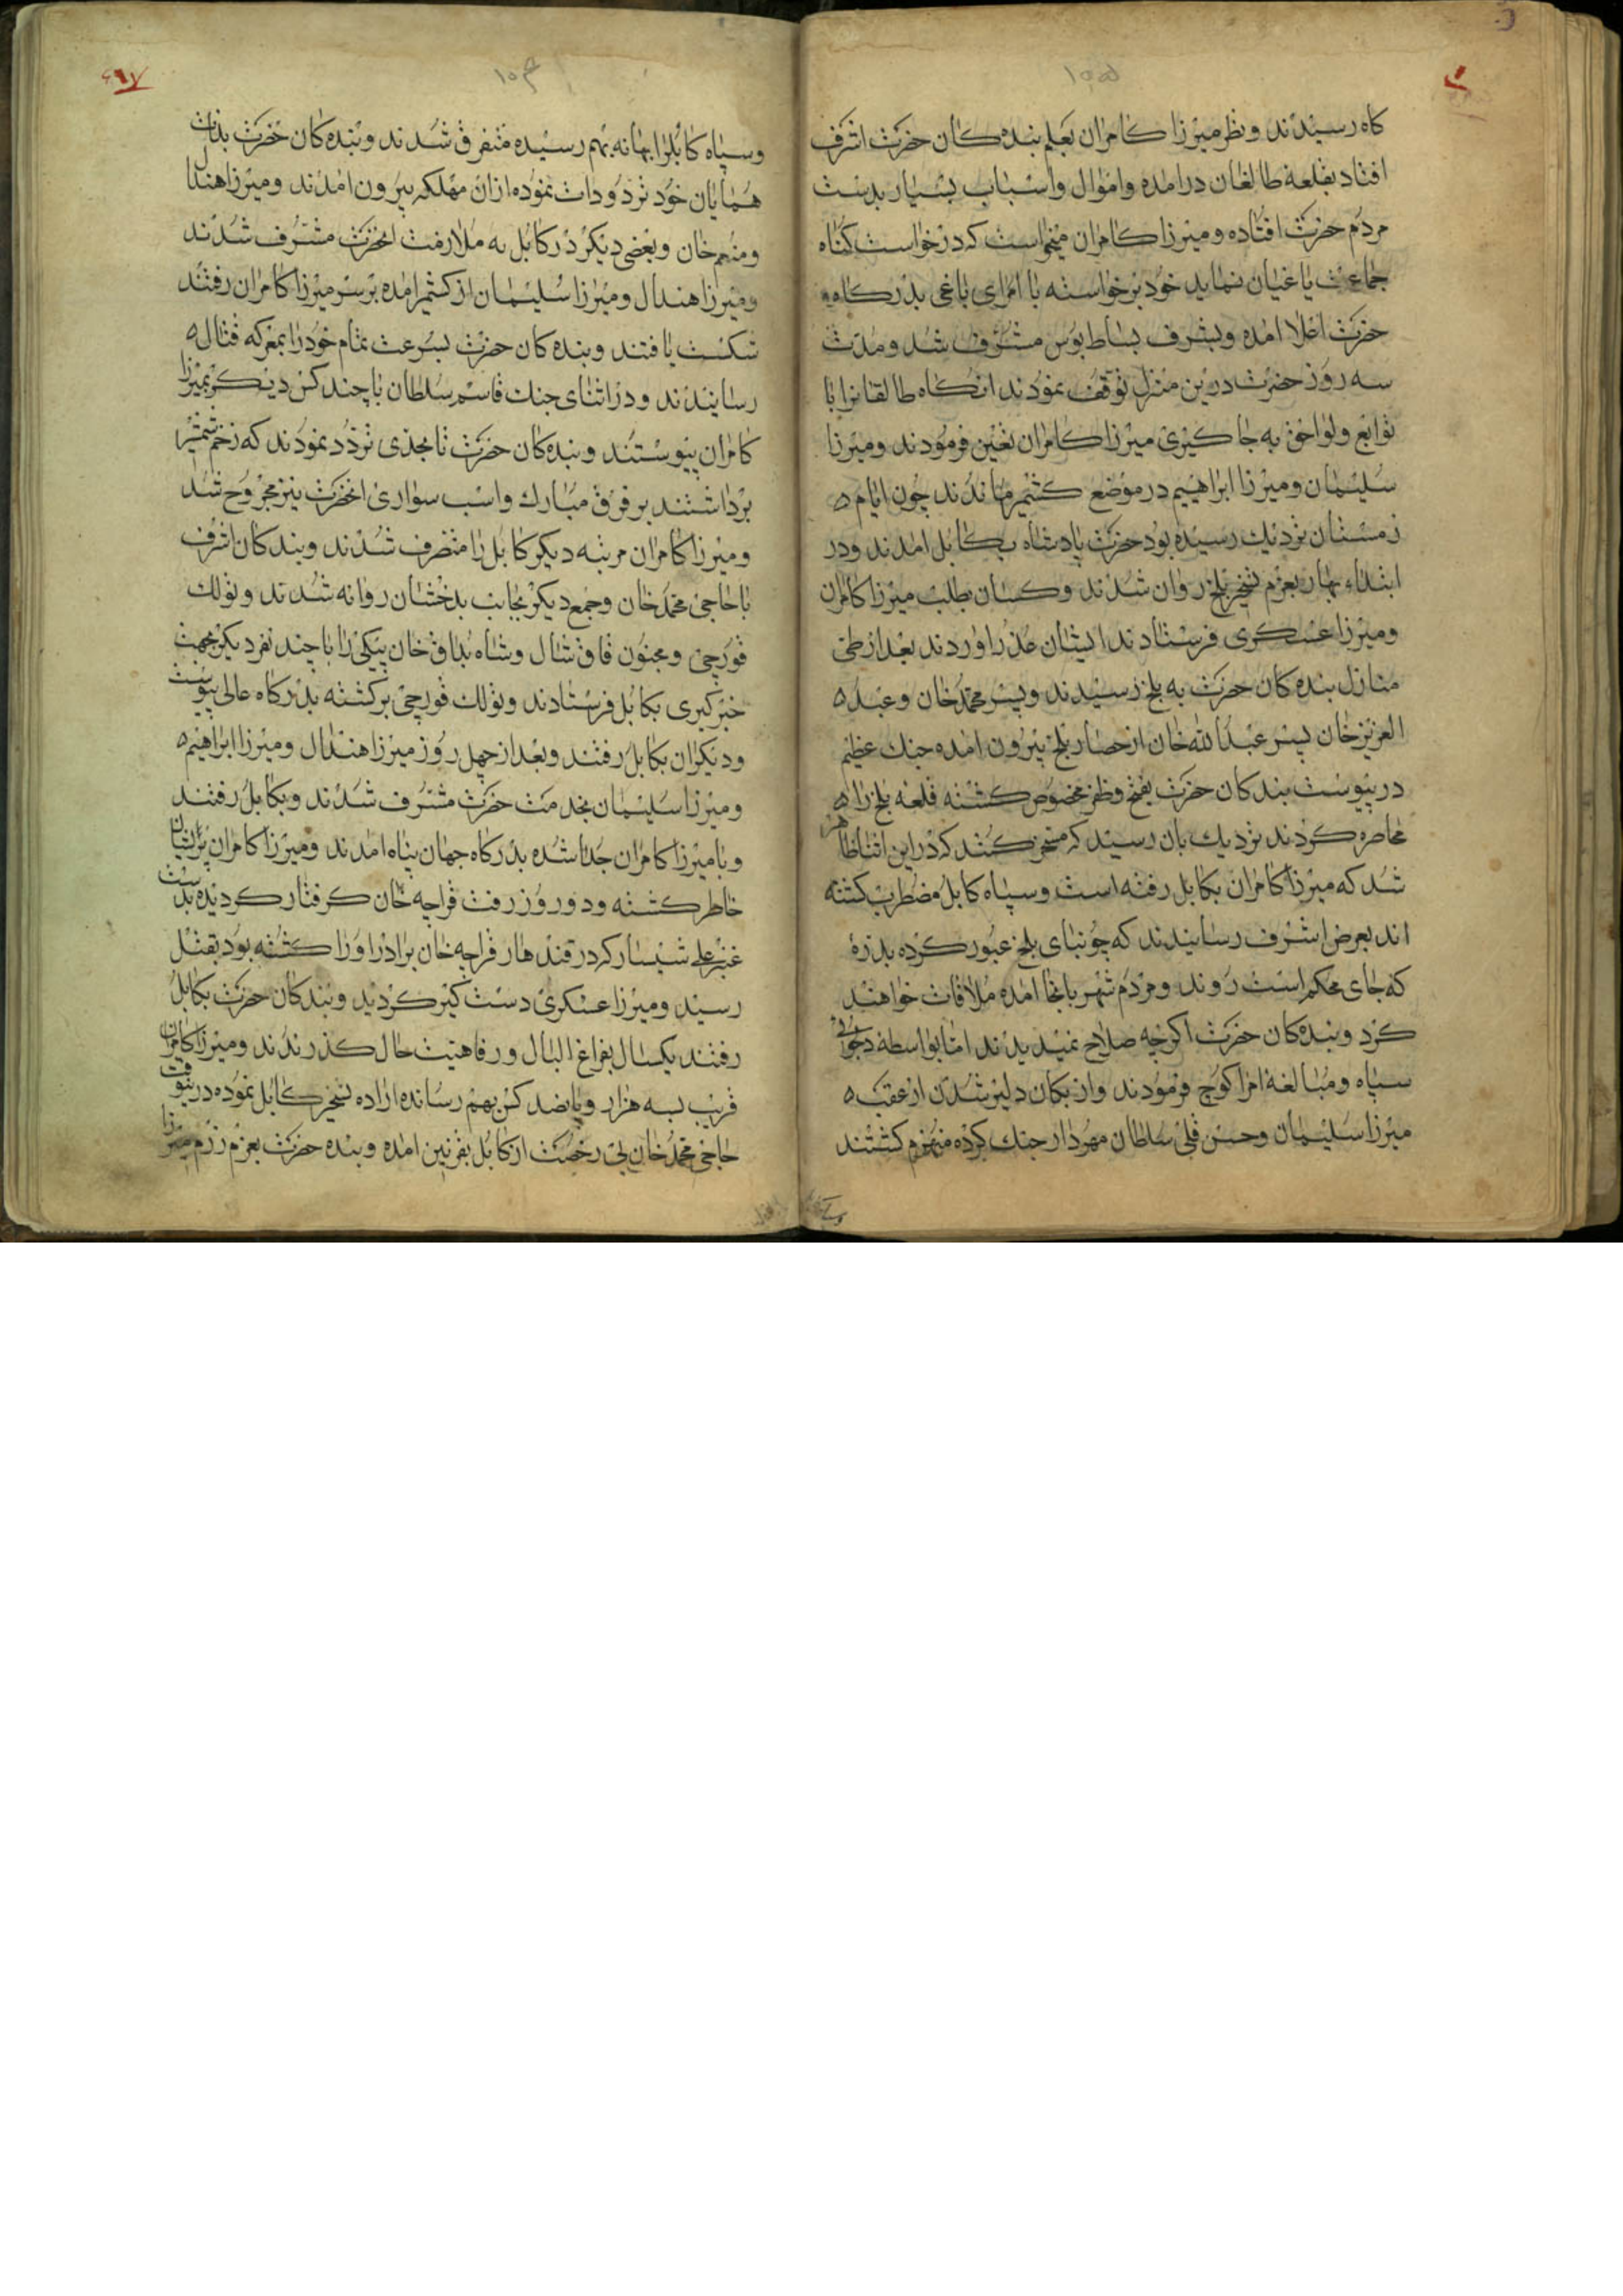 کاه رسیدند ونظر میرزا کامران بعلم بنده کان حضرت اشرف
افتاد بقلعهٔ طالغان درامده واموال واسباب بسیار بدست
مردم حضرت افتاده ومیرزا کامران میخواست که درخواست کناه
جماعت یاغیان نماید خود برخواسته با امرای یاغی بدرکاه
حضرت اعلا امده وبشرف بساط بوس مشرف شد ومدت
سه روز حضرت درین منزل توقف نمودند انکاه طالقانرا با
توابع ولواحق به جاکیری میرزا کامران تعین فرمودند ومیرزا
سلیمان ومیرزا ابراهیم در موضع کشیم ماندند چون ایام
زمستان نزدیک رسیده بود حضرت پادشاه بکابل امدند ودر
ابتداء بهار بعزم تسخیر بلخ روان شدند وکسان بطلب میرزا کامران
ومیرزا عسکری فرستادند ایشان عذر اوردند بعد از طی
منازل بنده کان حضرت به بلخ رسیدند وپسر محمد خان وعبد
العزیز خان پسر عبدالله خان از حصار بلخ بیرون امده جنک عظیم
در پیوست بندکان حضرت بفتح وظفر مخصوص کشته قلعه بلخ را
محاصره کردند نزدیک بان رسید که مسخر کنند که در این اثنا ظاهر
شد که میرزا کامران بکابل رفته است وسپاه کابل مضطرب کشته
اند بعرض اشرف رسانیدند که جونبای بلخ عبور کرده بدره
که جای محکم است روند ومردم شهر بانجا امده ملاقات خواهند
کرد وبنده کان حضرت اکرچه صلاح نمیدیدند اما بواسطه دلجوئی
سپاه ومبالغهٔ امرا کوچ فرمودند وازبکان دلیر شدن از عقب
میرزا سلیمان وحسن قلی سلطان مهردار جنک کرده منهزم کشتند
وسپاه کابل را بهانه بهم رسیده متفرق شدند وبنده کان حضرت بذات
همایان خود تردودات نموده ازان مهلکه بیرون امدند ومیرزا هندال
ومنعم خان وبعضی دیکر در کابل به ملازمت انحضرت مشرف شدند
ومیرزا هندال ومیرزا سلیمان از کشم امده بر سر میرزا کامران رفتند
شکست یافتند وبنده کان حضرت بسرعت تمام خود را بمعرکه قتال
رسانیدند ودر اثنای جنک قاسم سلطان با چند کس دیکر بمیرزا
کامران پیوستند وبنده کان حضرت تا بحدی تردد نمودند که زخم شمشیر
برداشتند بر فرق مبارک واسب سواری انحضرت نیز مجروح شد
ومیرزا کامران مرتبه دیکر کابل را متصرف شدند وبندکان اشرف
با حاجی محمد خان وجمع دیکر بجانب بدخشان روانه شدند وتولک
قورچی ومجنون قاقشال وشاه بداق خان بیکی را با چند نفر دیکر بجهت
خبرکیری بکابل فرستادند وتولک قورچی برکشته بدرکاه عالی پیوست
ودیکران بکابل رفتند وبعد از چهل روز میرزا هندال ومیرزا ابراهیم
ومیرزا سلیمان بخدمت حضرت مشرف شدند وبکابل رفتند
وبا میرزا کامران جدا شده بدرکاه جهان پناه امدند ومیرزا کامران پریشان
خاطر کشته ودر روز رفت قراجه خان کرفتار کردیده بدست
قنبر علی شبسار که در قندهار قراجه خان برادر او را کشته بود بقتل
رسید ومیرزا عسکری دست کیر کردید وبندکان حضرت بکابل
رفتند یکسال بفراغ البال ورفاهیت حال کذرندند ومیرزا کامران
قریب بسه هزار وپانصد کس بهم رسانده اراده تسخیر کابل نموده درینوقت
حاجی محمد خان بی رخصت از کابل بغزنین امده وبنده حضرت بعزم رزم میرزا